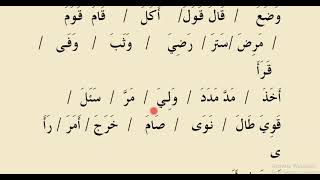 وَضَعَ / قَالَ قَوَلَ / أَكَلَ / قَامَ قَوَمَ
/ مَرِضَ / سَتَرَ / رَضِيَ / وَثَبَ / وَفَى /
قَرَأَ
أَخَذَ / مَدَّ مَدَدَ / وَلِيَ / مَرَّ / سَئَلَ /
قَوِيَ طَالَ / نَوَى / صَامَ / خَرَجَ / أَمَرَ / رَأَ
ى